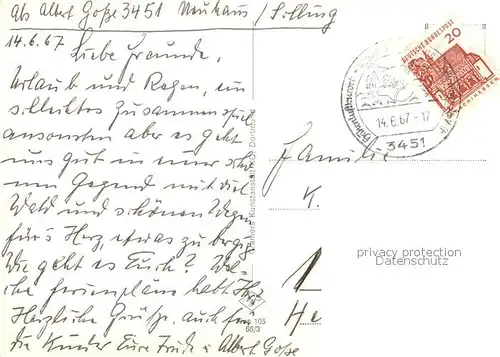 Abs Albert Goße 3451 Neuhaus / Solling
14.6.67
Liebe Freunde,
Urlaub und Regen, ein
schlechtes Zusammenspiel
ansonsten aber es geht
uns gut in einer schö-
nen Gegend mit viel
Wald und schönen Wegen
für's Herz, etwas zu bergig
Wie geht es Euch? Wel-
che Ferienpläne habt Ihr
Herzliche Grüße, auch für
die Kinder Eure Frida u. Albert Goße
105
66/3
DEUTSCHE BUNDESPOST
20
14.6.67-17
3451
Familie
K.
privacy protection
Datenschutz